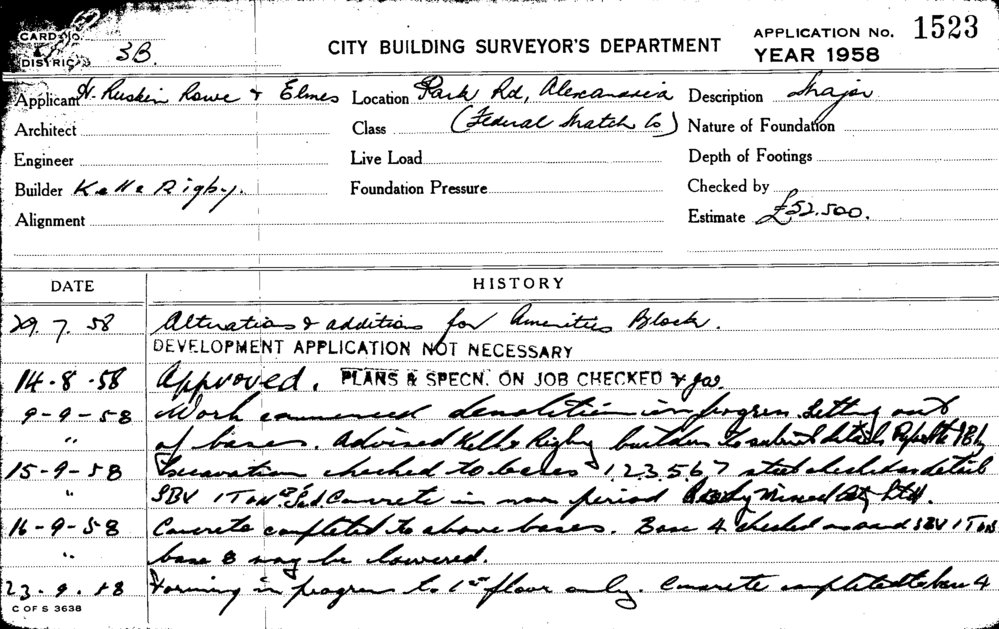 CARD No.
DISTRICT 3B.
CITY BUILDING SURVEYOR'S DEPARTMENT
APPLICATION No. 1523
YEAR 1958
Applicant H. Ruskin Rowe & Elmes Location Park Rd, Alexandria Description Major
Architect Class (Federal Match Co) Nature of Foundation
Engineer Live Load Depth of Footings
Builder Kell & Rigby. Foundation Pressure Checked by
Alignment Estimate £52,500.
DATE HISTORY
29. 7. 58 Alterations & additions for Amenities Block.
DEVELOPMENT APPLICATION NOT NECESSARY
14-8-58 Approved. PLANS & SPECN. ON JOB CHECKED
9-9-58 Work commenced demolition in progress. Setting out
" of bases. Advised Kell & Rigby builders to submit details
15-9-58 Excavation checked to bases 1.2.3.5.6.7 steel checked as detail
" SBV 1 Ton Concrete in non period Ready Mixed Pty Ltd.
16-9-58 Concrete completed to above bases. Base 4 checked SBV 1 Ton
" base 8 may be lowered.
23.9.58 Forming in progress to 1st floor only. Concrete completed to base 4
C OF S 3638